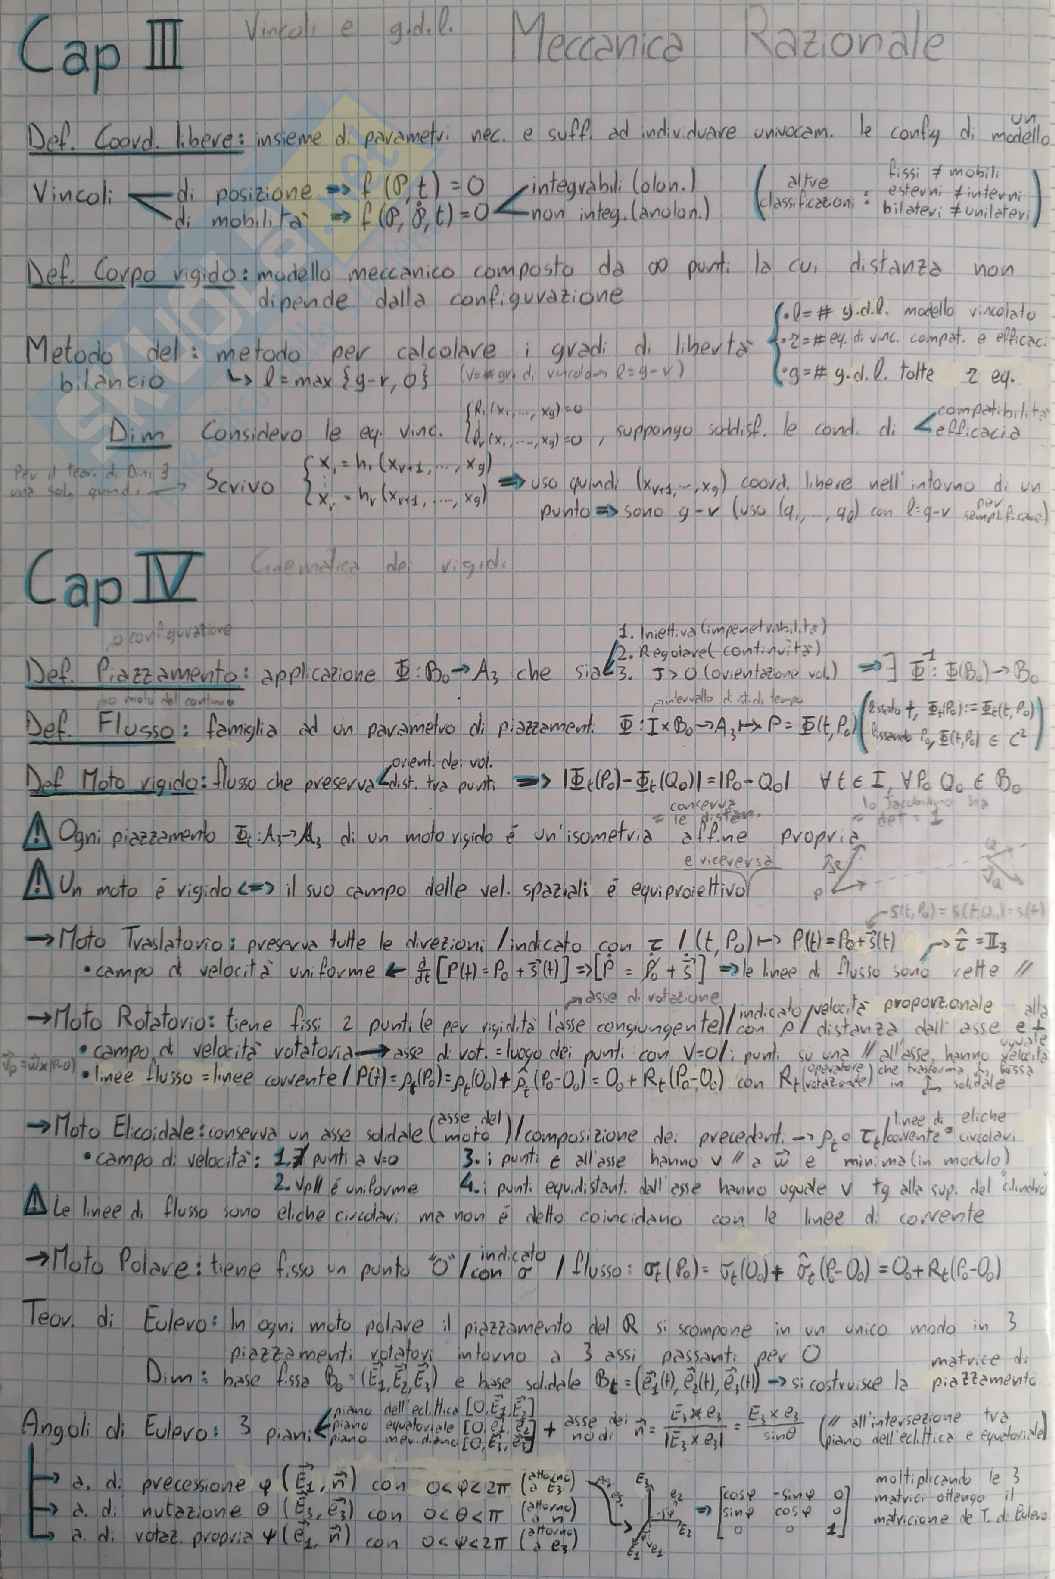 Cap III Vincoli e g.d.l. Meccanica Razionale
Def. Coord. libere: insieme di parametri nec. e suff. ad individuare univocam. le config di un modello
Vincoli di posizione => f(P,t)=0 integrabili (olon.)
di mobilità => f(P,Ṗ,t)=0 non integ. (anolon.)
(altre classificazioni: fissi ≠ mobili
esterni ≠ interni
bilateri ≠ unilateri)
Def. Corpo rigido: modello meccanico composto da ∞ punti la cui distanza non
dipende dalla configurazione
Metodo del bilancio: metodo per calcolare i gradi di libertà
↳ l = max {g-r, 0}
• l = # g.d.l. modello vincolato
• r = # eq. di vinc. compat. e efficaci
• g = # g.d.l. tolte r eq.
Dim Considero le eq. vinc. , suppongo soddisf. le cond. di compatibilità
efficacia
Per il teor. di Dini ∃
una sola quindi →
Scrivo { x₁ = h₁(x_{r+1}, ..., x_g)
x_r = h_r(x_{r+1}, ..., x_g)
=> uso quindi (x_{r+1}, ..., x_g) coord. libere nell'intorno di un
punto => sono g-r (uso (q₁, ..., q_l) con l=g-r per semplificare)
Cap IV Cinematica dei rigidi
o configurazione
Def. Piazzamento: applicazione Φ: B₀→A₃ che sia 1. Iniettiva (impenetrabilità)
2. Regolare (continuità)
3. J>0 (orientazione vol.) => ∃ Φ⁻¹: Φ(B₀)→B₀
o moto del continuo
Def. Flusso: famiglia ad un parametro di piazzamenti Φ: I×B₀→A₃ ↦ P=Φ(t,P₀) (fissato t, Φₜ(P₀):=Φ(t,P₀)
fissando P₀, Φ(t,P₀) ∈ C²)
intervallo di t
Def Moto rigido: flusso che preserva orient. dei vol.
dist. tra punti => |Φₜ(P₀)-Φₜ(Q₀)|=|P₀-Q₀| ∀t∈I, ∀P₀ Q₀ ∈ B₀
⚠ Ogni piazzamento Φₜ: A₃→A₃ di un moto rigido è un'isometria affine propria
= conserva le distan.
⚠ Un moto è rigido <=> il suo campo delle vel. spaziali è equiproiettivo
e viceversa
→ Moto Traslatorio: preserva tutte le direzioni / indicato con τ / (t,P₀) ↦ P(t)=P₀+s(t) → τ̂ = I₃
s(t,P₀)=s(t,Q₀)=s(t)
• campo di velocità uniforme ← d/dt [P(t)=P₀+s(t)] => [Ṗ=Ṗ₀+ṡ] => le linee di flusso sono rette //
asse di rotazione
→ Moto Rotatorio: tiene fissi 2 punti (e per rigidità l'asse congiungente) / indicato con ρ / velocità proporzionale alla
distanza dall'asse e ⊥
• campo di velocità rotatoria → asse di rot. = luogo dei punti con V=0 / i punti su una // all'asse hanno uguale velocità
v_P=ω×(P-O)
• linee flusso = linee corrente / P(t)=ρₜ(P₀)=ρₜ(O₀)+ρ̂ₜ(P₀-O₀)=O₀+Rₜ(P₀-O₀) con Rₜ (operatore rotazione) che trasforma fissa in solidale
→ Moto Elicoidale: conserva un asse solidale (asse del moto) / composizione dei precedenti → ρₜ∘τₜ / linee di corrente = eliche circolari
• campo di velocità: 1. ∄ punti a v=0 3. i punti ∈ all'asse hanno v // a ω e minima (in modulo)
2. v_P∥ è uniforme 4. i punti equidistanti dall'asse hanno uguale v tg alla sup. del "cilindro"
⚠ Le linee di flusso sono eliche circolari ma non è detto coincidano con le linee di corrente
→ Moto Polare: tiene fisso un punto "O" / indicato con σ / flusso: σₜ(P₀)=σₜ(O₀)+σ̂ₜ(P₀-O₀)=O₀+Rₜ(P₀-O₀)
Teor. di Eulero: In ogni moto polare il piazzamento del R si scompone in un unico modo in 3
piazzamenti rotatori intorno a 3 assi passanti per O
Dim: base fissa B₀=(E₁,E₂,E₃) e base solidale Bₜ=(e₁(t),e₂(t),e₃(t)) → si costruisce la matrice di piazzamento
Angoli di Eulero: 3 piani piano dell'eclittica [O,E₁,E₂]
piano equatoriale [O,e₁,e₂]
piano meridiano [O,E₃,e₃]
+ asse dei nodi n = E₃×e₃/|E₃×e₃| = E₃×e₃/sinθ (// all'intersezione tra
piano dell'eclittica e equatoriale)
→ a. di precessione φ (E₁,n) con 0<φ<2π (attorno a E₃)
→ a. di nutazione θ (E₃,e₃) con 0<θ<π (attorno a n)
→ a. di rotaz. propria ψ (e₁,n) con 0<ψ<2π (attorno a e₃)
=> [cosφ -sinφ 0
sinφ cosφ 0
0 0 1]
moltiplicando le 3
matrici ottengo il
matricione de T. di Eulero